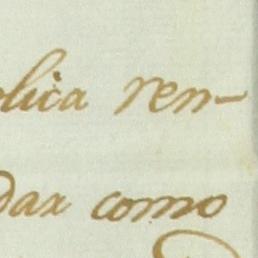 olica ren-
dar como